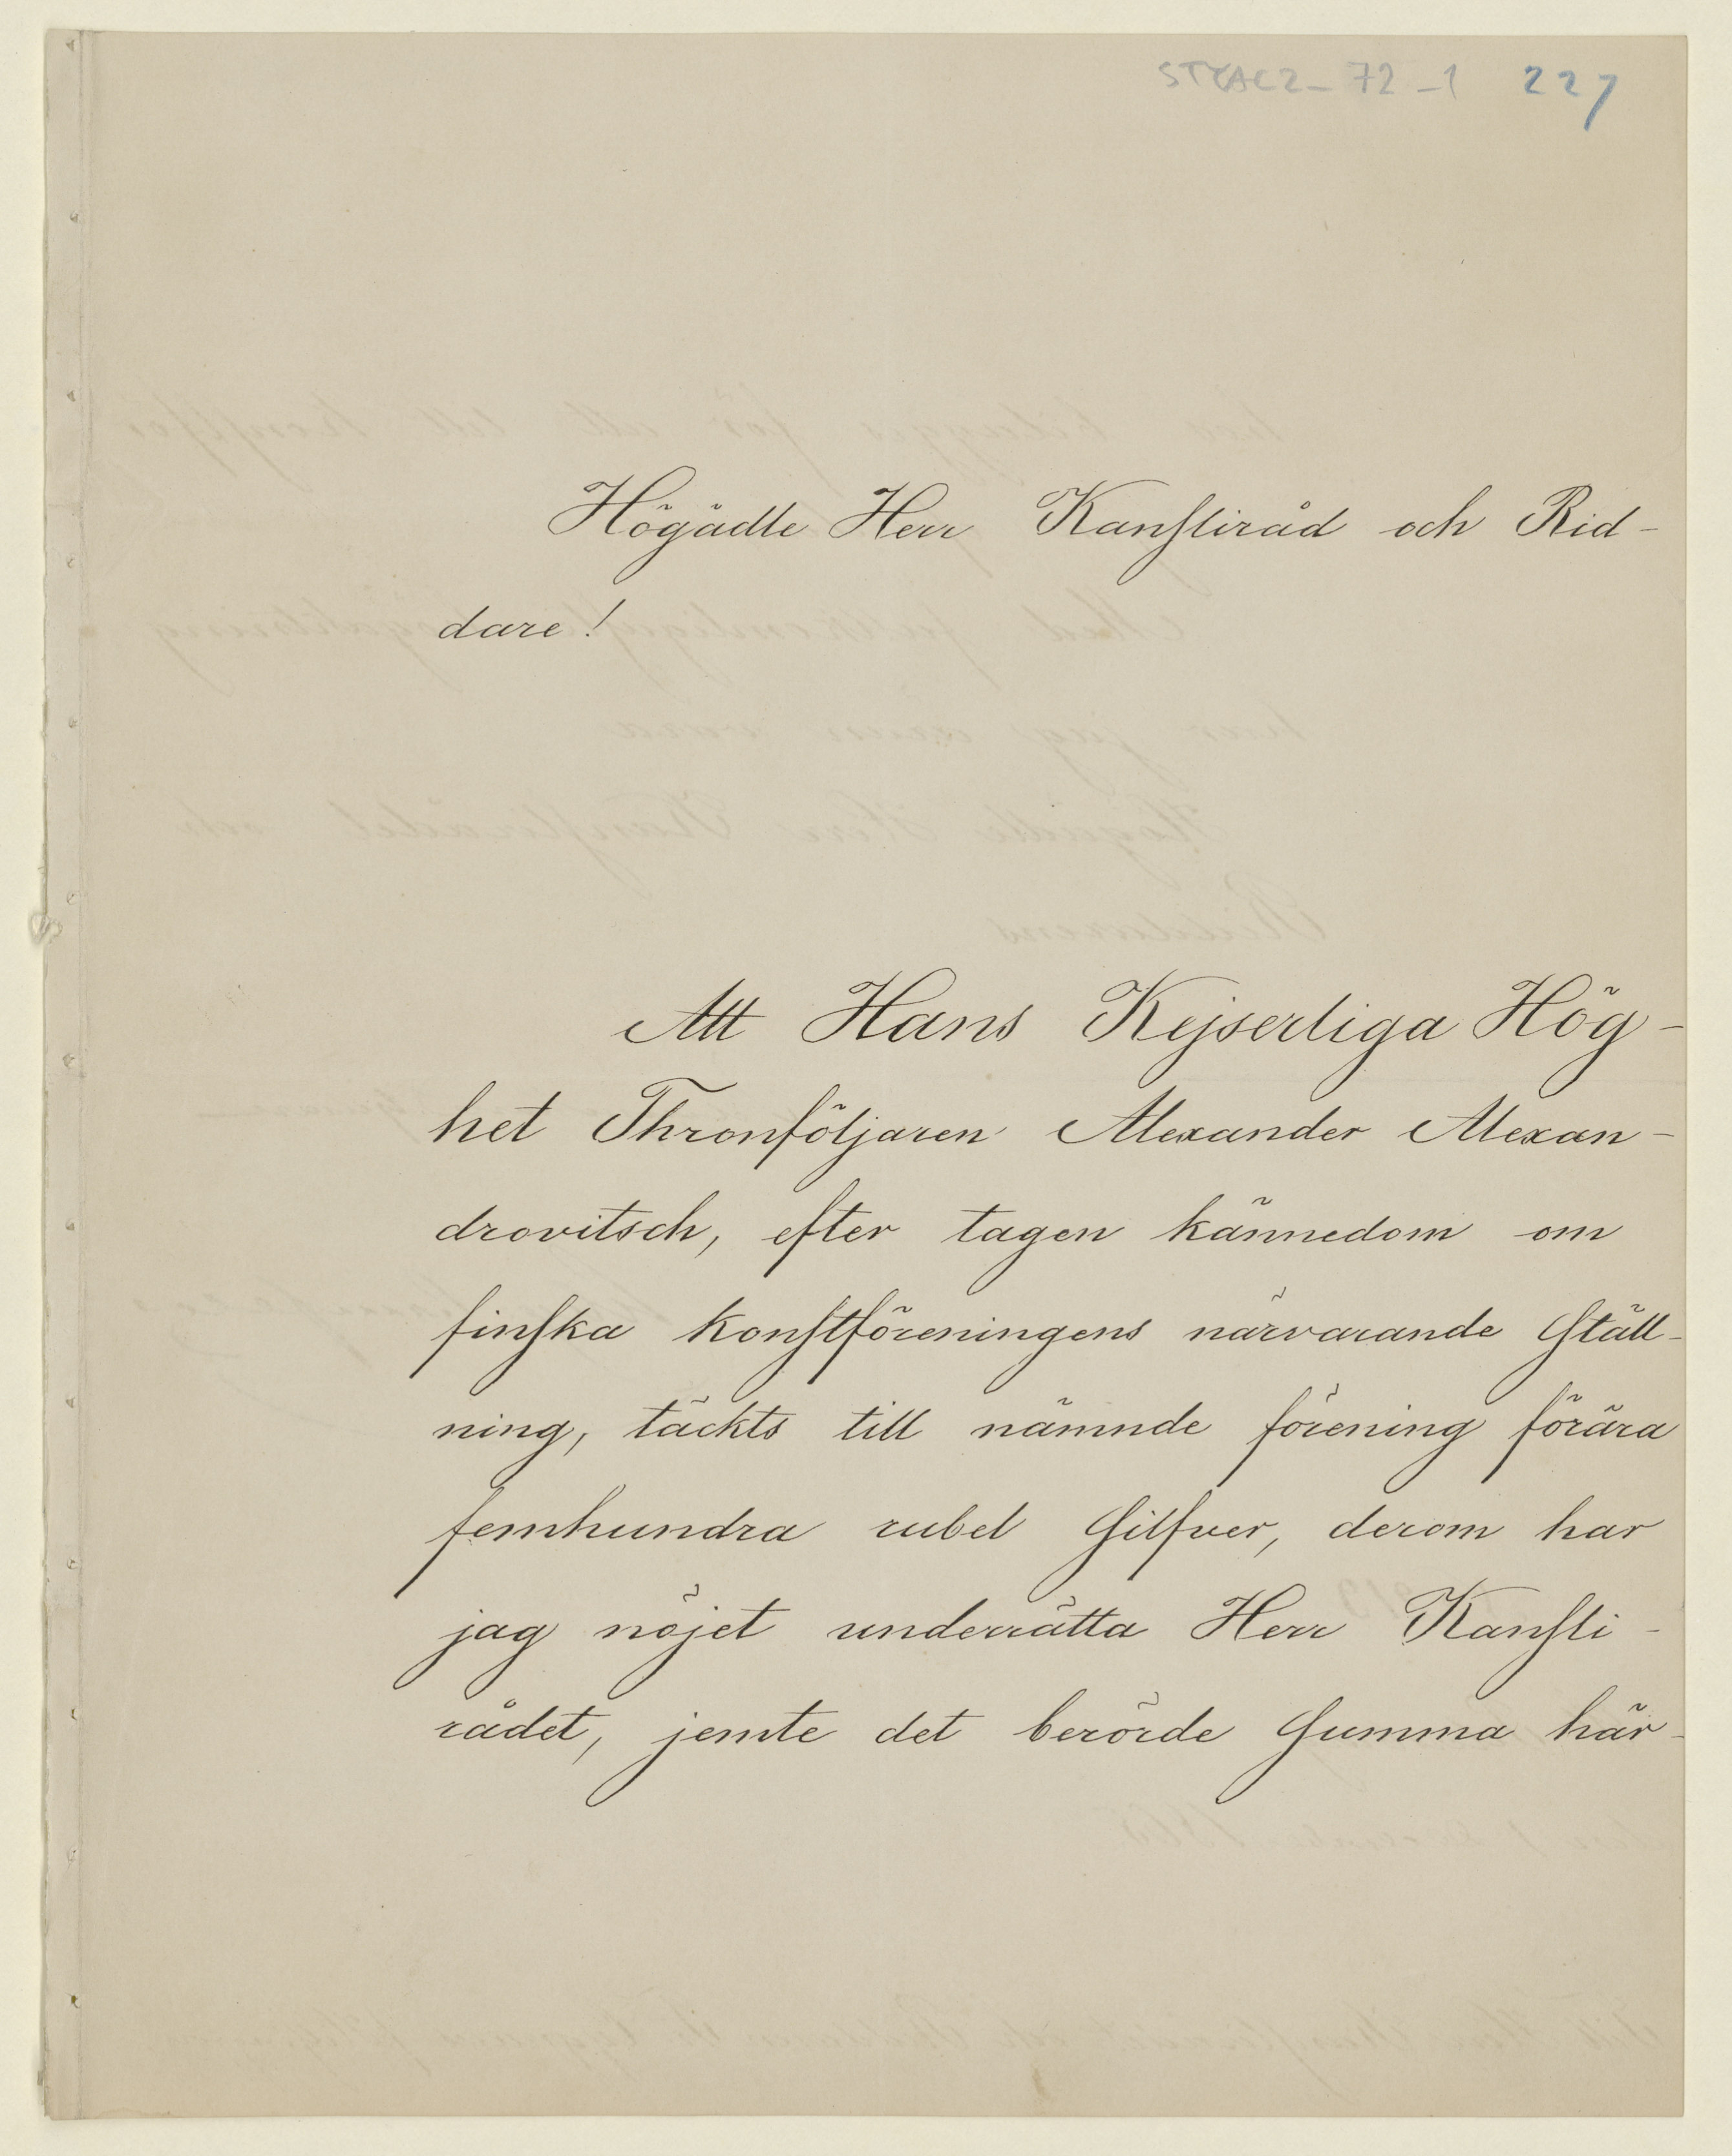 STYAC2_72_1 227
Högädle Herr Kansliråd och Rid-
dare!
Att Hans Kejserliga Hög-
het Thronföljaren Alexander Alexan-
drovitsch, efter tagen kännedom om
finska konstföreningens närvarande ställ-
ning, täckts till nämnde förening förära
femhundra rubel silfver, derom har
jag nöjet underrätta Herr Kansli-
rådet, jemte det berörde summa här-